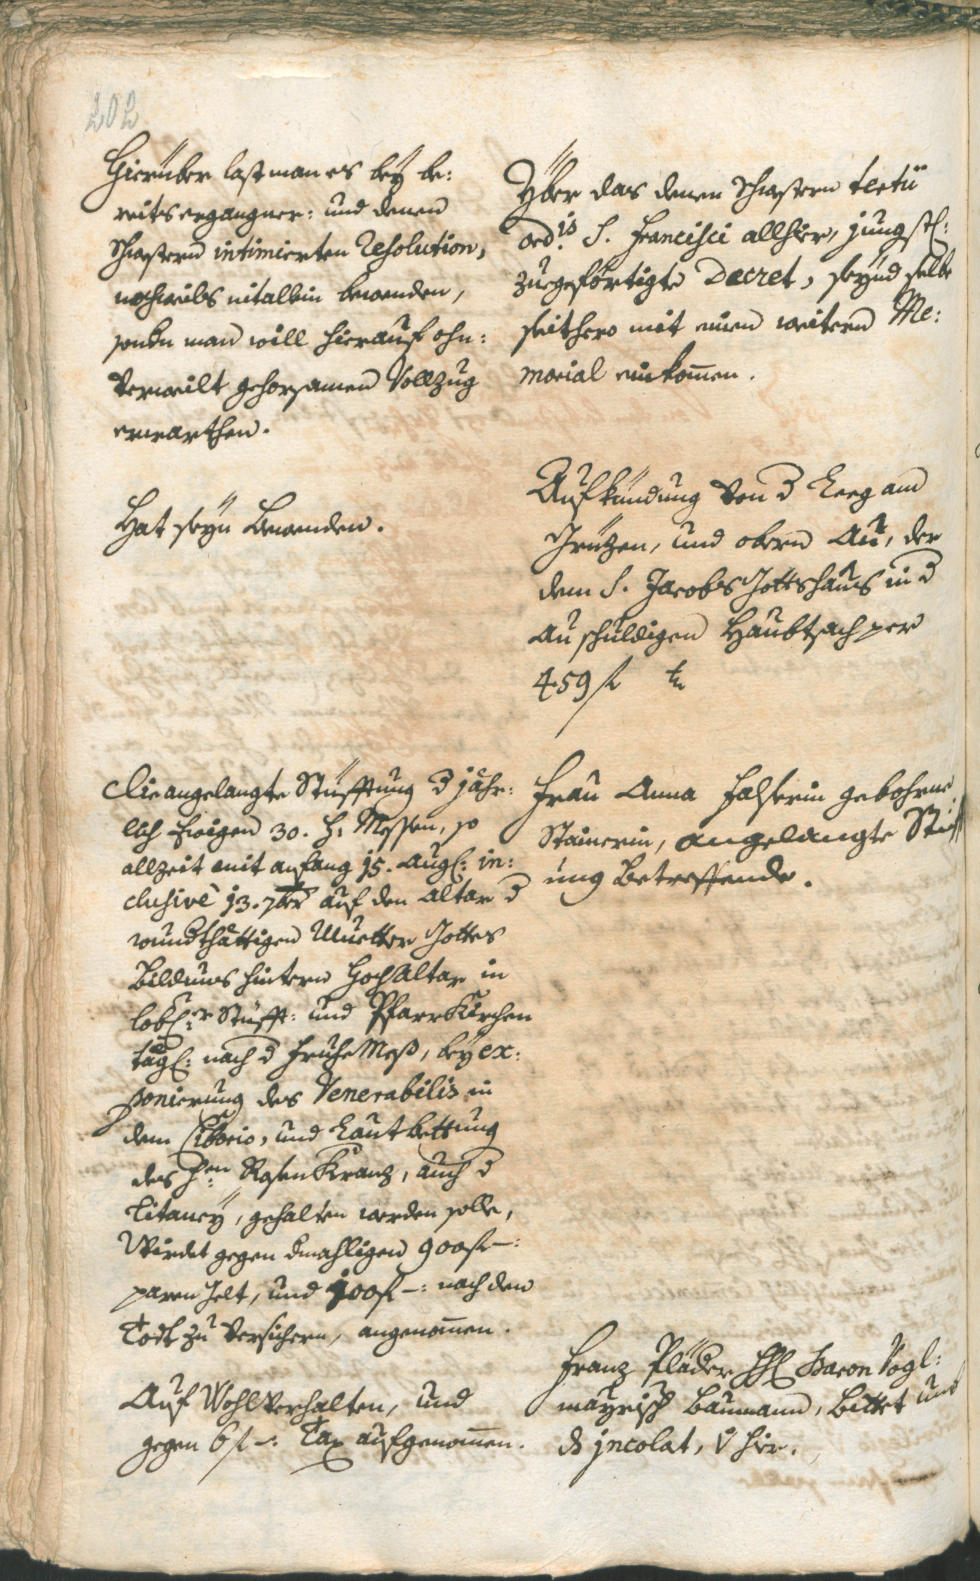 202
Hierüber last man es bey be:
reits ergangner: und denen
Schwestern intimierten Resolution,
nochmals nit allein bewenden,
sondern man will hierauf ohn:
verweilt gehorsamen Vollzug
erwarthen.
Hat seyn Bewenden.
Die angelangte Stüfftung d jähr:
lich Ewigen 30. H: Messen, so
allzeit mit anfang 15. Aug: in:
clusivè 13. 7ber auf den Altar d
wundthättigen Muetter Gottes
Bildnus hintern Hoch Altar in
lobl:r Stüfft: und PfarrKirchen
tägl: nach d Fruhe Meß, bey ex:
ponierung des Venerabilis in
dem Ciborio, und Lautbettung
des H:en Rosen Kranz, auch d
Litaney, gehalten werden solle,
Würdet gegen dmahligen 900 fl –:
paren gelt, und 100 fl –: nach dem
Todt zu versichern, angenom̄en.
Auf Wohlverhalten, und
gegen 6 fl –: Tax aufgenom̄en.
Yber das denen Schwestern tertii
ord:is S. Francisci allhier, jungst:
zuegeförtigte Decret, seynd selbe
seithero mit einen weitern Me:
morial einkom̄en.
Aufkündung von d Leeg am
Grützen, und obern Au, der
dem S. Jacobs Gottshaus in d
Au schuldigen Haubtsach per
459 fl
Frau Anna Falserin gebohrne
Stainerin, angelangte Stüff
ung Betreffende.
Franz Plader Baron Vogl:
mayrisch Baumann, Bittet umb
ds jncolat, hier.